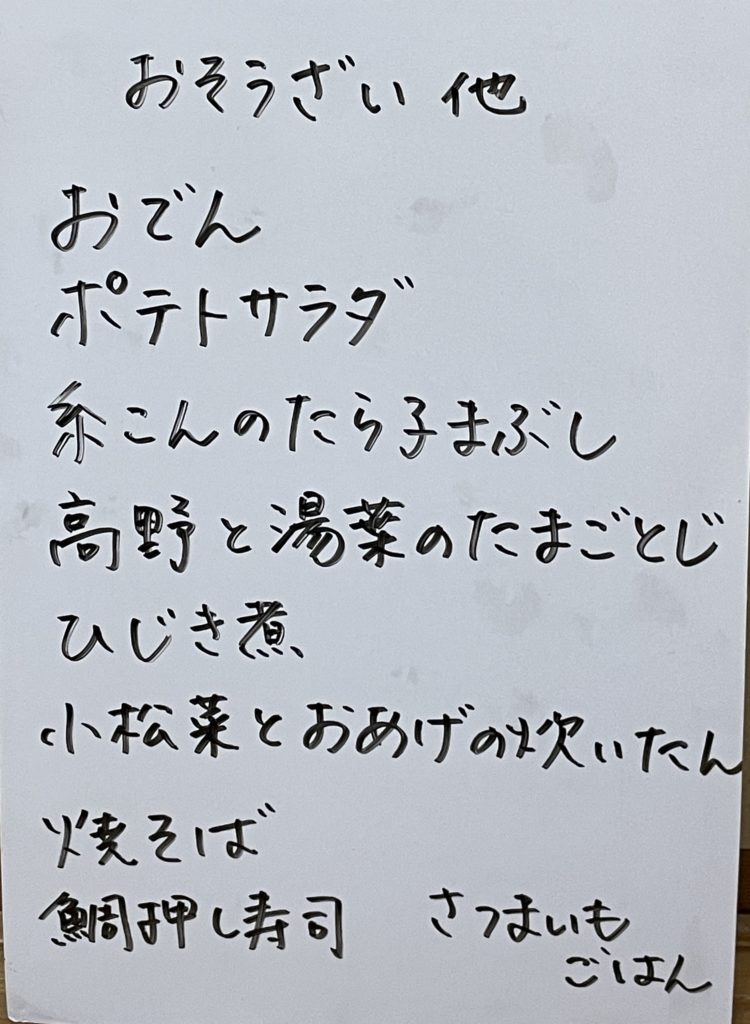 おそうざい 他
おでん
ポテトサラダ
糸こんのたら子まぶし
高野と湯葉のたまごとじ
ひじき煮
小松菜とおあげの炊いたん
焼そば
鯛押し寿司 さつまいも
ごはん